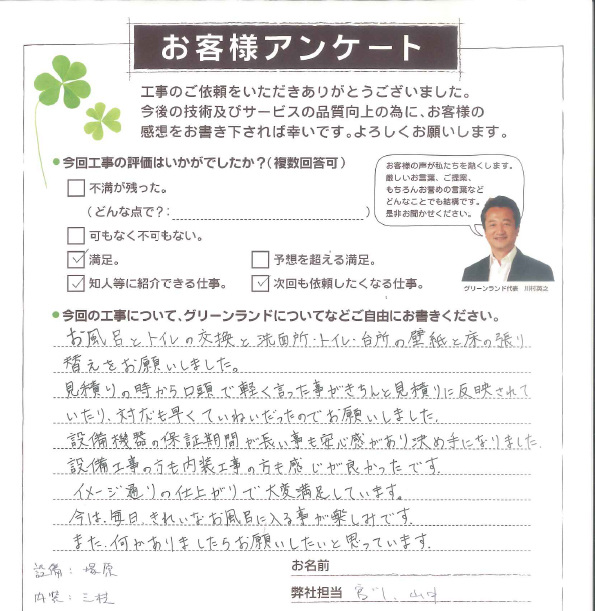 お客様アンケート
工事のご依頼をいただきありがとうございました。
今後の技術及びサービスの品質向上の為に、お客様の
感想をお書き下されば幸いです。よろしくお願いします。
●今回工事の評価はいかがでしたか？(複数回答可)
不満が残った。
（どんな点で？：）
可もなく不可もない。
満足。
予想を超える満足。
知人等に紹介できる仕事。
次回も依頼したくなる仕事。
お客様の声が私たちを動くします。
厳しいお言葉、ご提案、
もちろんお誉めの言葉など
どんなことでも結構です。
是非お聞かせください。
グリーンランド代表 川村英之
●今回の工事について、グリーンランドについてなどご自由にお書きください。
お風呂とトイレの交換と洗面所・トイレ・台所の壁紙と床の張り
替えをお願いしました。
見積りの時から口頭で軽く言った事がきちんと見積りに反映されて
いたり、対応も早くていねいだったのでお願いしました。
設備機器の保証期間が長い事も安心感があり決め手になりました。
設備工事の方も内装工事の方も感じが良かったです。
イメージ通りの仕上がりで大変満足しています。
今は、毎日、きれいなお風呂に入る事が楽しみです。
また、何かありましたらお願いしたいと思っています。
設備： 塚原
内装： 三枝
お名前
弊社担当